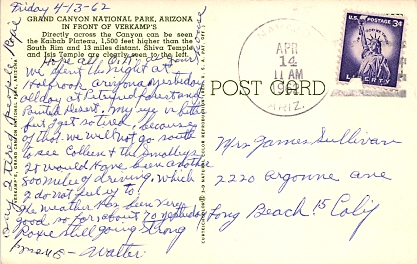 Friday 4/13-62
GRAND CANYON NATIONAL PARK, ARIZONA
IN FRONT OF VERKAMP'S
Directly across the Canyon can be seen
the Kaibab Plateau, 1,500 feet higher than the
South Rim and 13 miles distant. Shiva Temple
and Isis Temple are clearly seen to the left.
Hope all O.K. at yours
we spent the night at
Holbrook, Arizona, yesterday
all day at Petrified Forest and
Painted Desert. My eye is little
but get so tired, because
of that we will not go south
to see Colleen & the Smalleys
It would have been another
500 miles of driving, which
I do not feel up to.
The weather has been very
good so far, about 70 yesterday
Roxie still going strong
Walter
POST CARD
APR
14
11 AM
ARIZ.
U.S. POSTAGE
3¢
LIBERTY
Mrs James Sullivan
2220 Argonne Ave
Long Beach 15 Calif